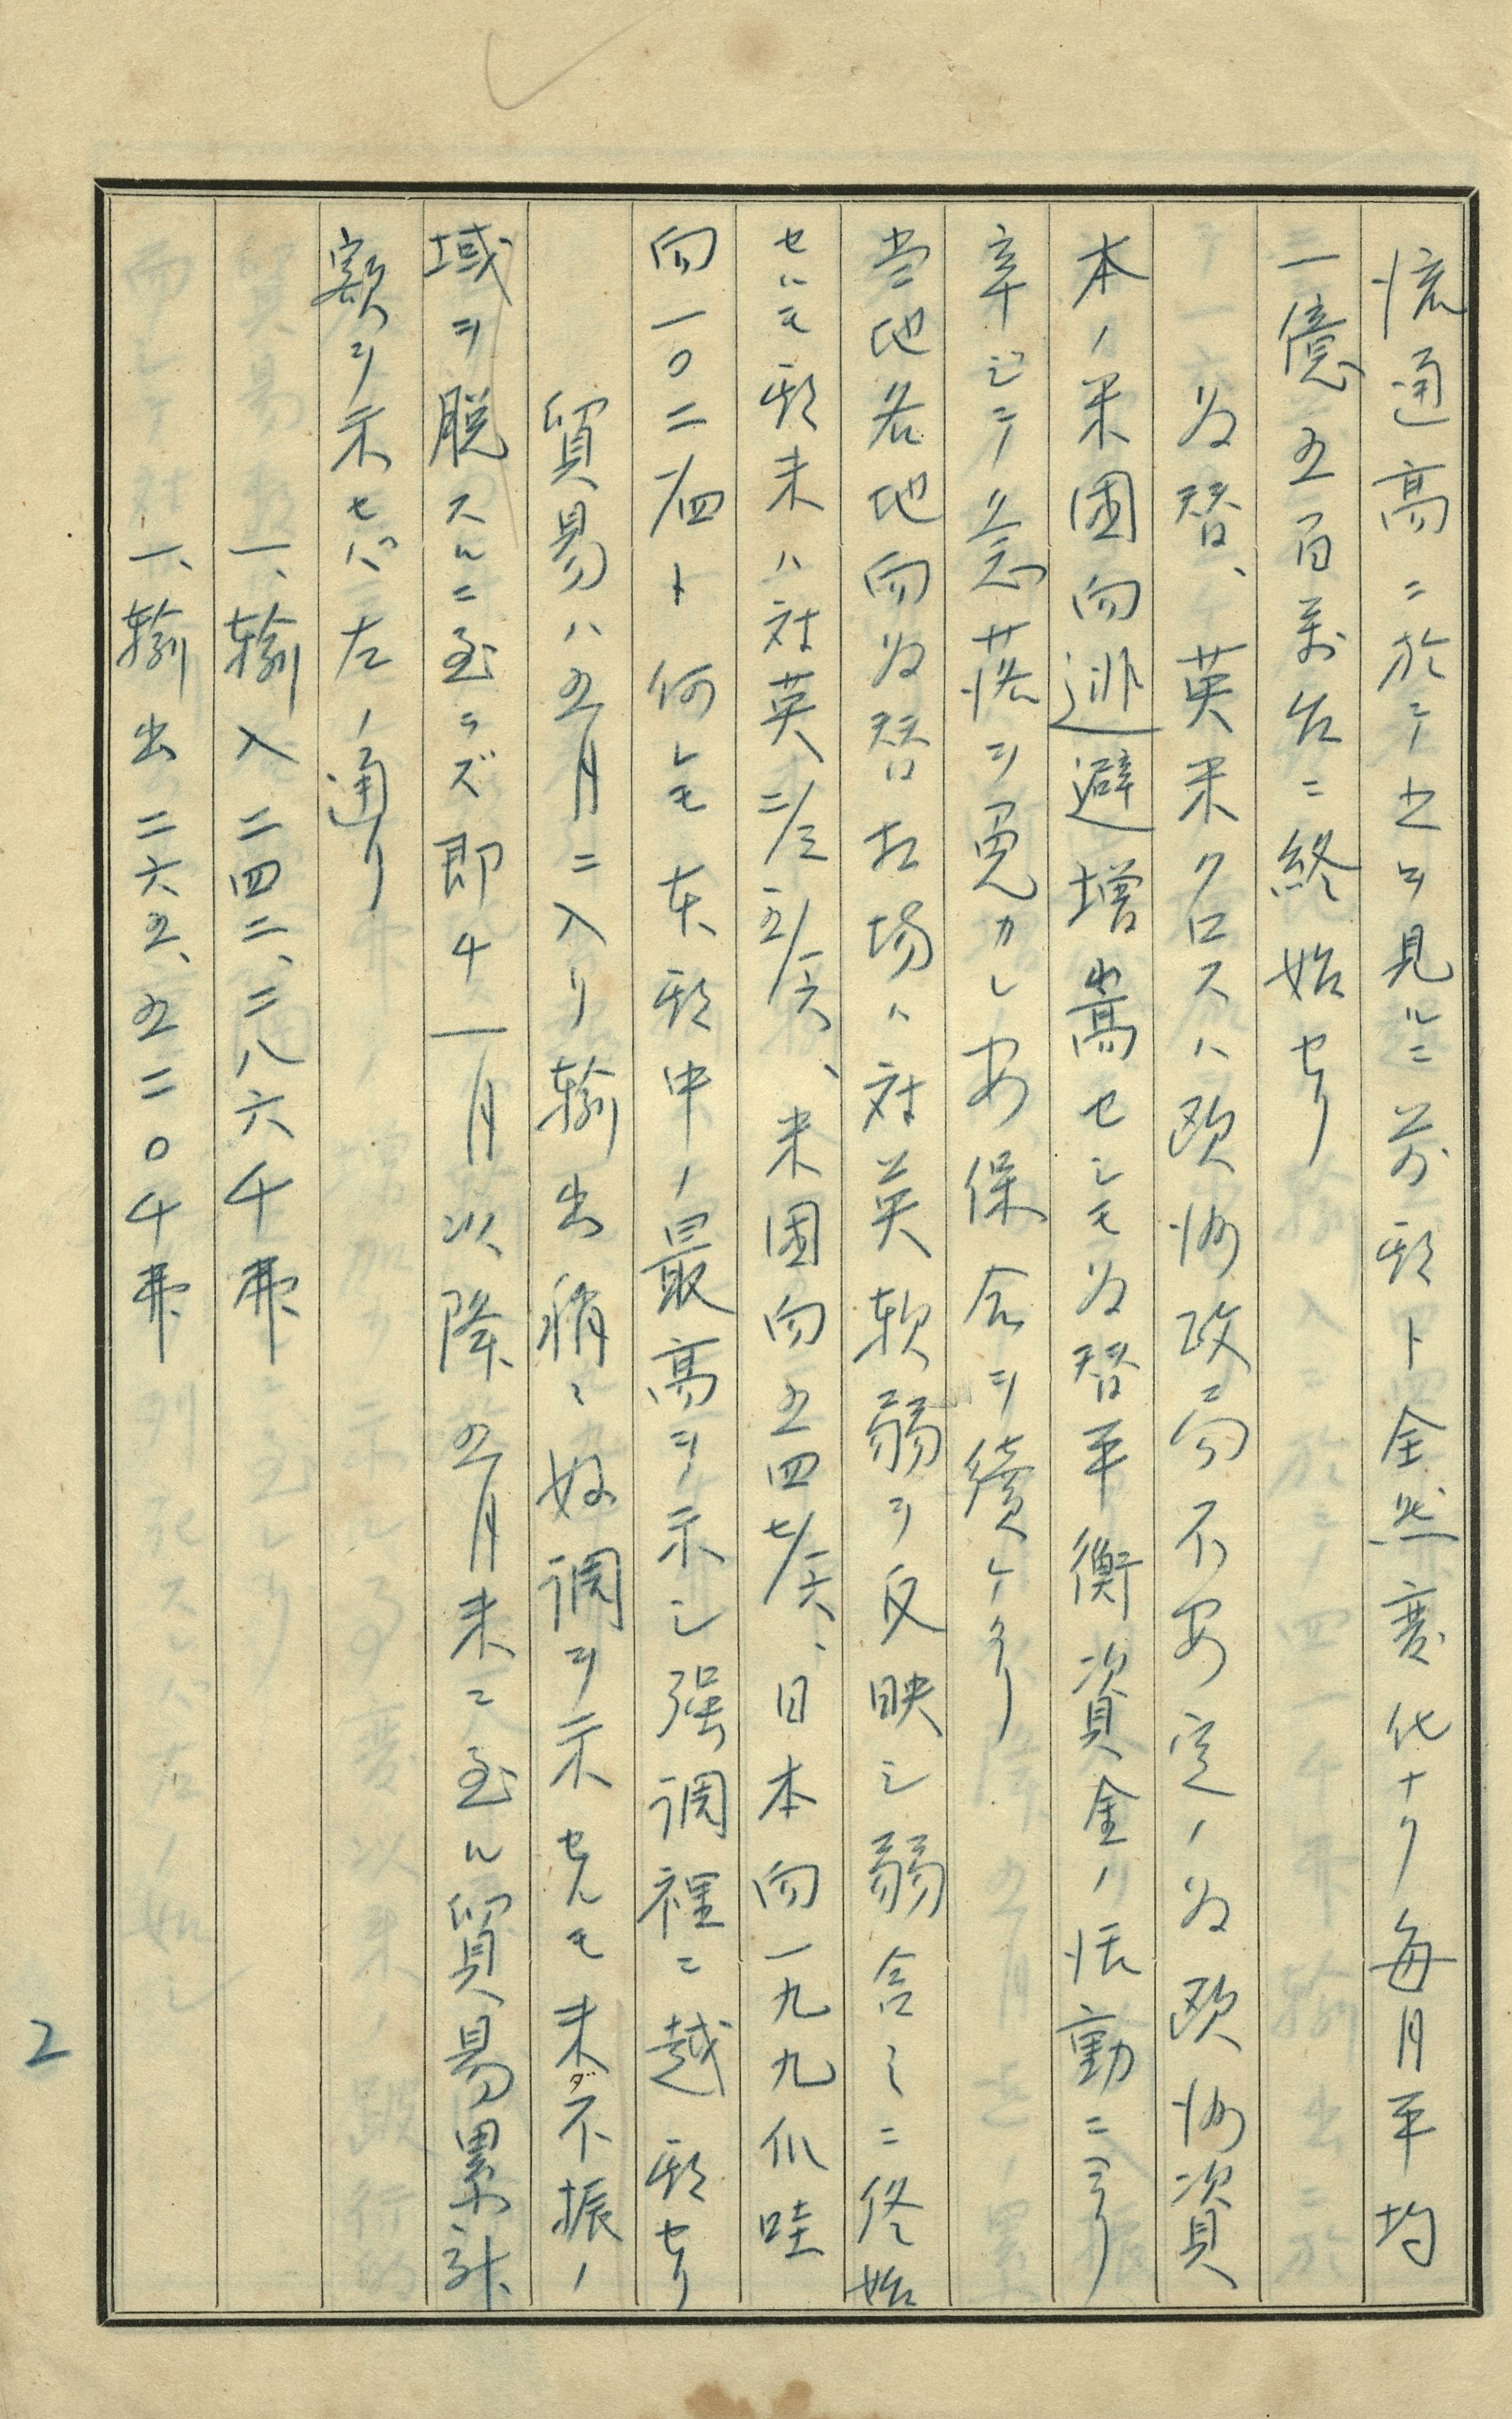 流通高ニ於テ之ヲ見ルニ前期ト全然変化ナク毎月平均
二億五百万台ニ終始セリ
為替、英米クロスハ欧洲政局不安定ノ為欧洲資
本ノ米国向逃避増嵩セシモ為替平衡資金ノ活動ニヨリ
辛ジテ急落ヲ免カレ安保合ヲ続ケタリ
当地各地向為替相場ハ対英軟弱ヲ反映シ弱含ミニ終始
セルモ期末ハ対英二/三五/一六、米国向五四七/一六、日本向一九九爪哇
向一〇二/四ト何レモ本期中ノ最高ヲ示シ强調裡ニ越期セリ
貿易ハ五月ニ入リ輸出稍々好調ヲ示セルモ未ダ不振ノ
域ヲ脱スルニ至ラズ即チ一月以降五月末ニ至ル貿易累計
額ヲ示セバ左ノ通リ
一、輸入二四二、二八六千弗
一、輸出二六五、五二〇千弗
2